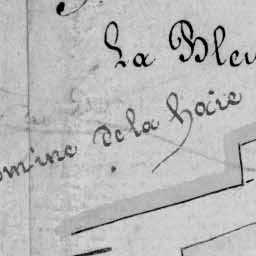 La Bleu
omine de la haie